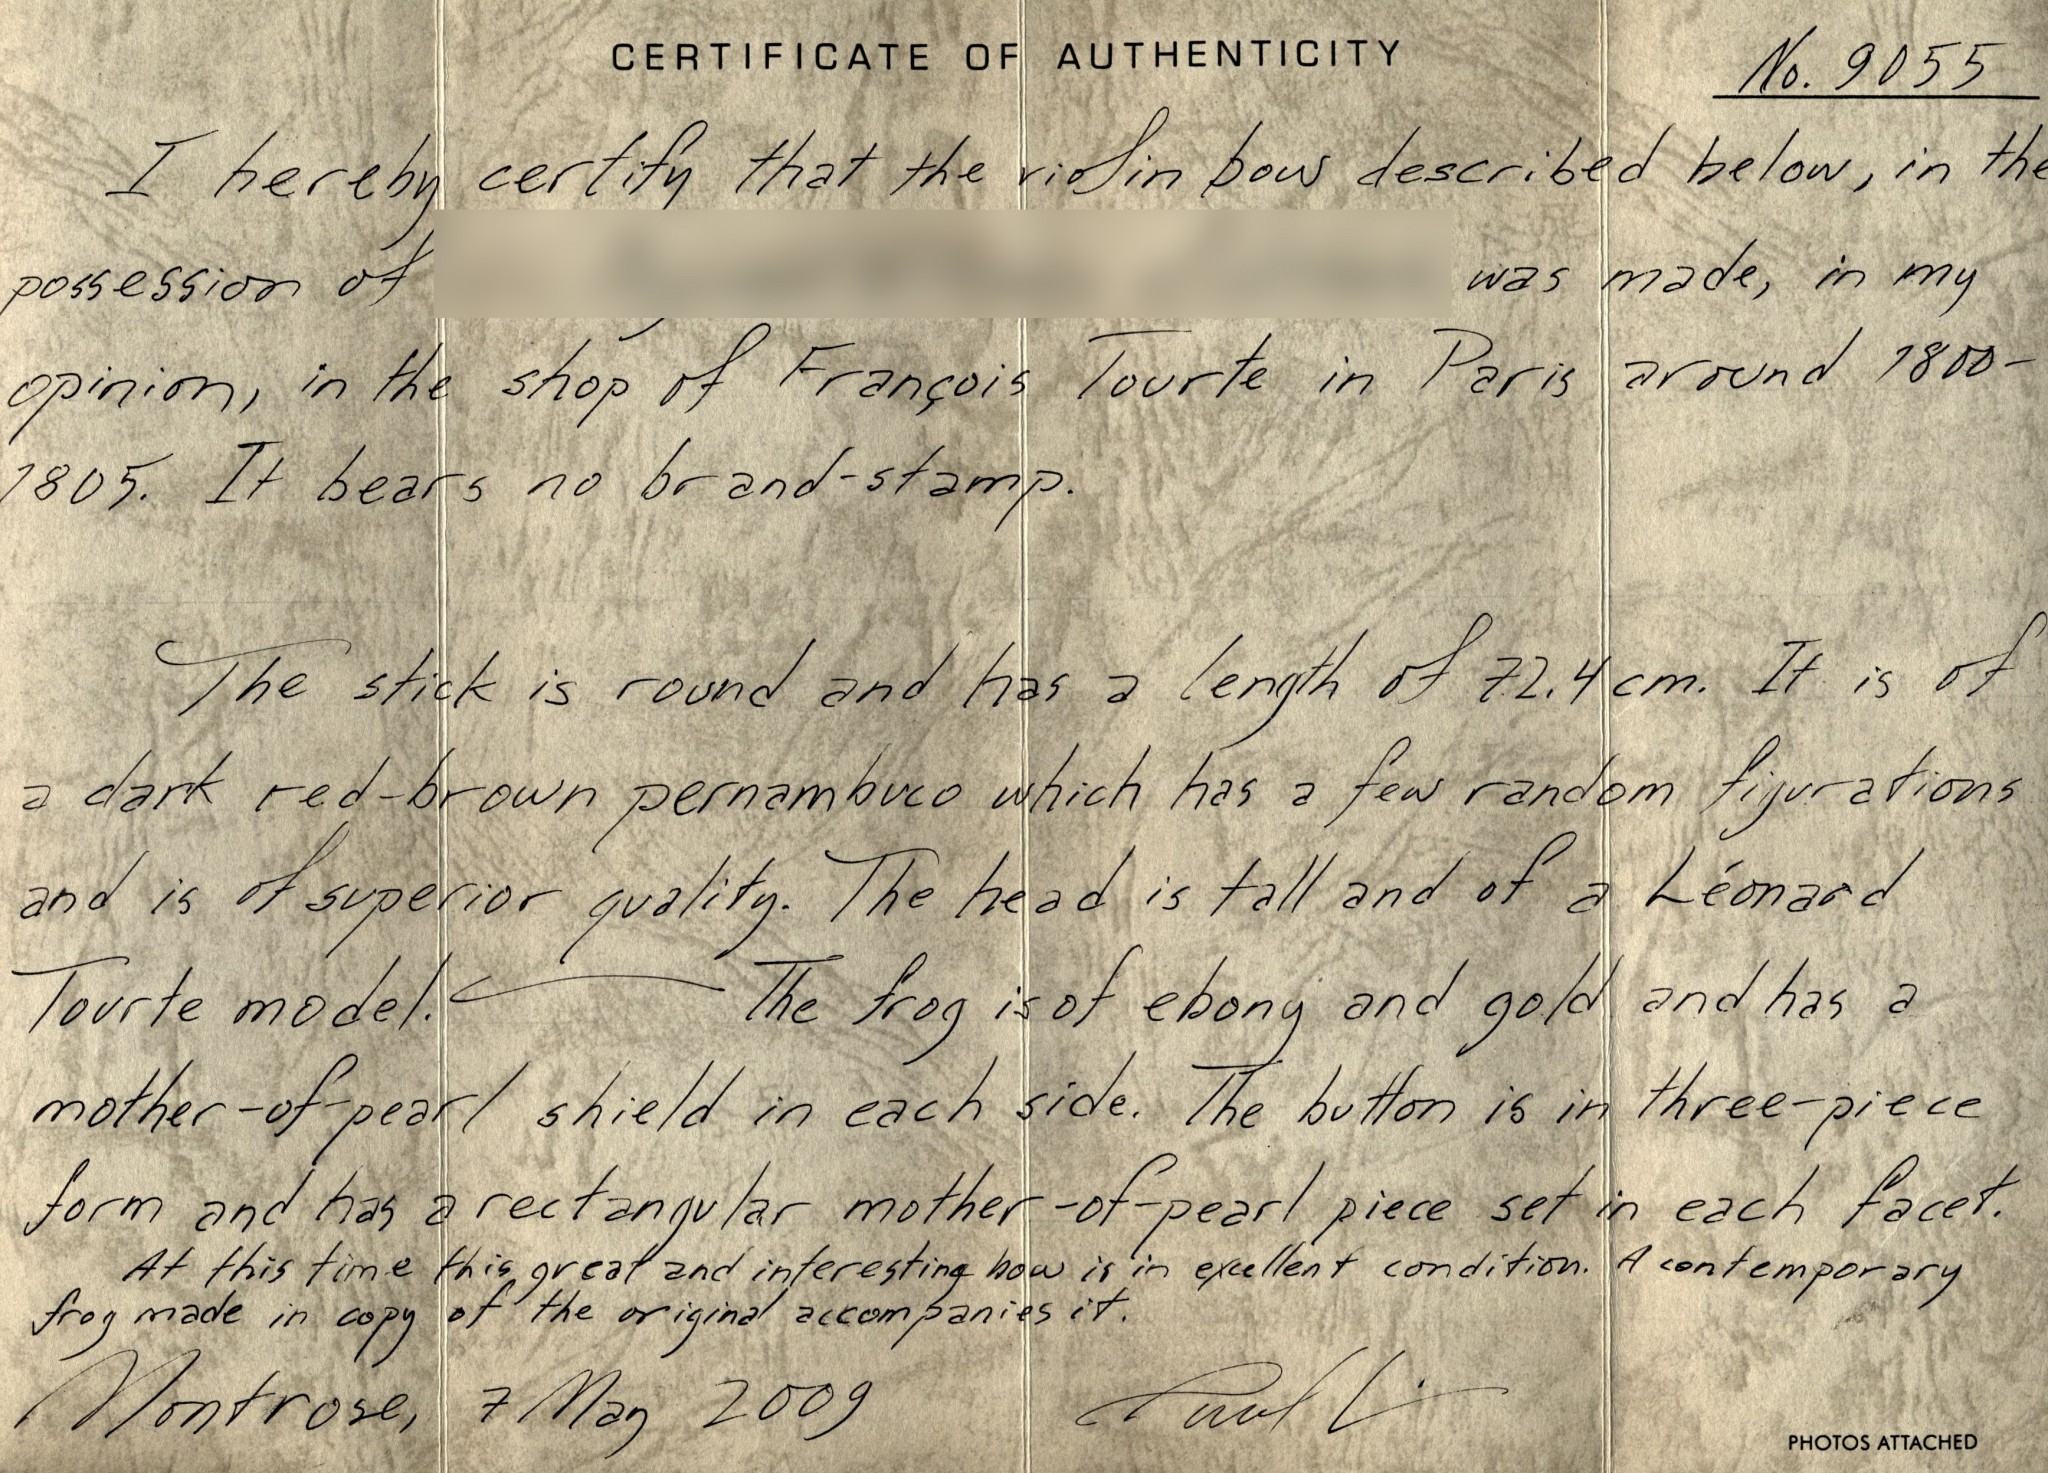 CERTIFICATE OF AUTHENTICITY
No. 9055
I hereby certify that the violin bow described below, in the
possession of was made, in my
opinion, in the shop of François Tourte in Paris around 1800-
1805. It bears no brand-stamp.
The stick is round and has a length of 72.4 cm. It is of
a dark red-brown pernambuco which has a few random figurations
and is of superior quality. The head is tall and of a Léonard
Tourte model. The frog is of ebony and gold and has a
mother-of-pearl shield in each side. The button is in three-piece
form and has a rectangular mother-of-pearl piece set in each facet.
At this time this great and interesting bow is in excellent condition. A contemporary
frog made in copy of the original accompanies it.
Montrose, 7 May 2009 Paul
PHOTOS ATTACHED